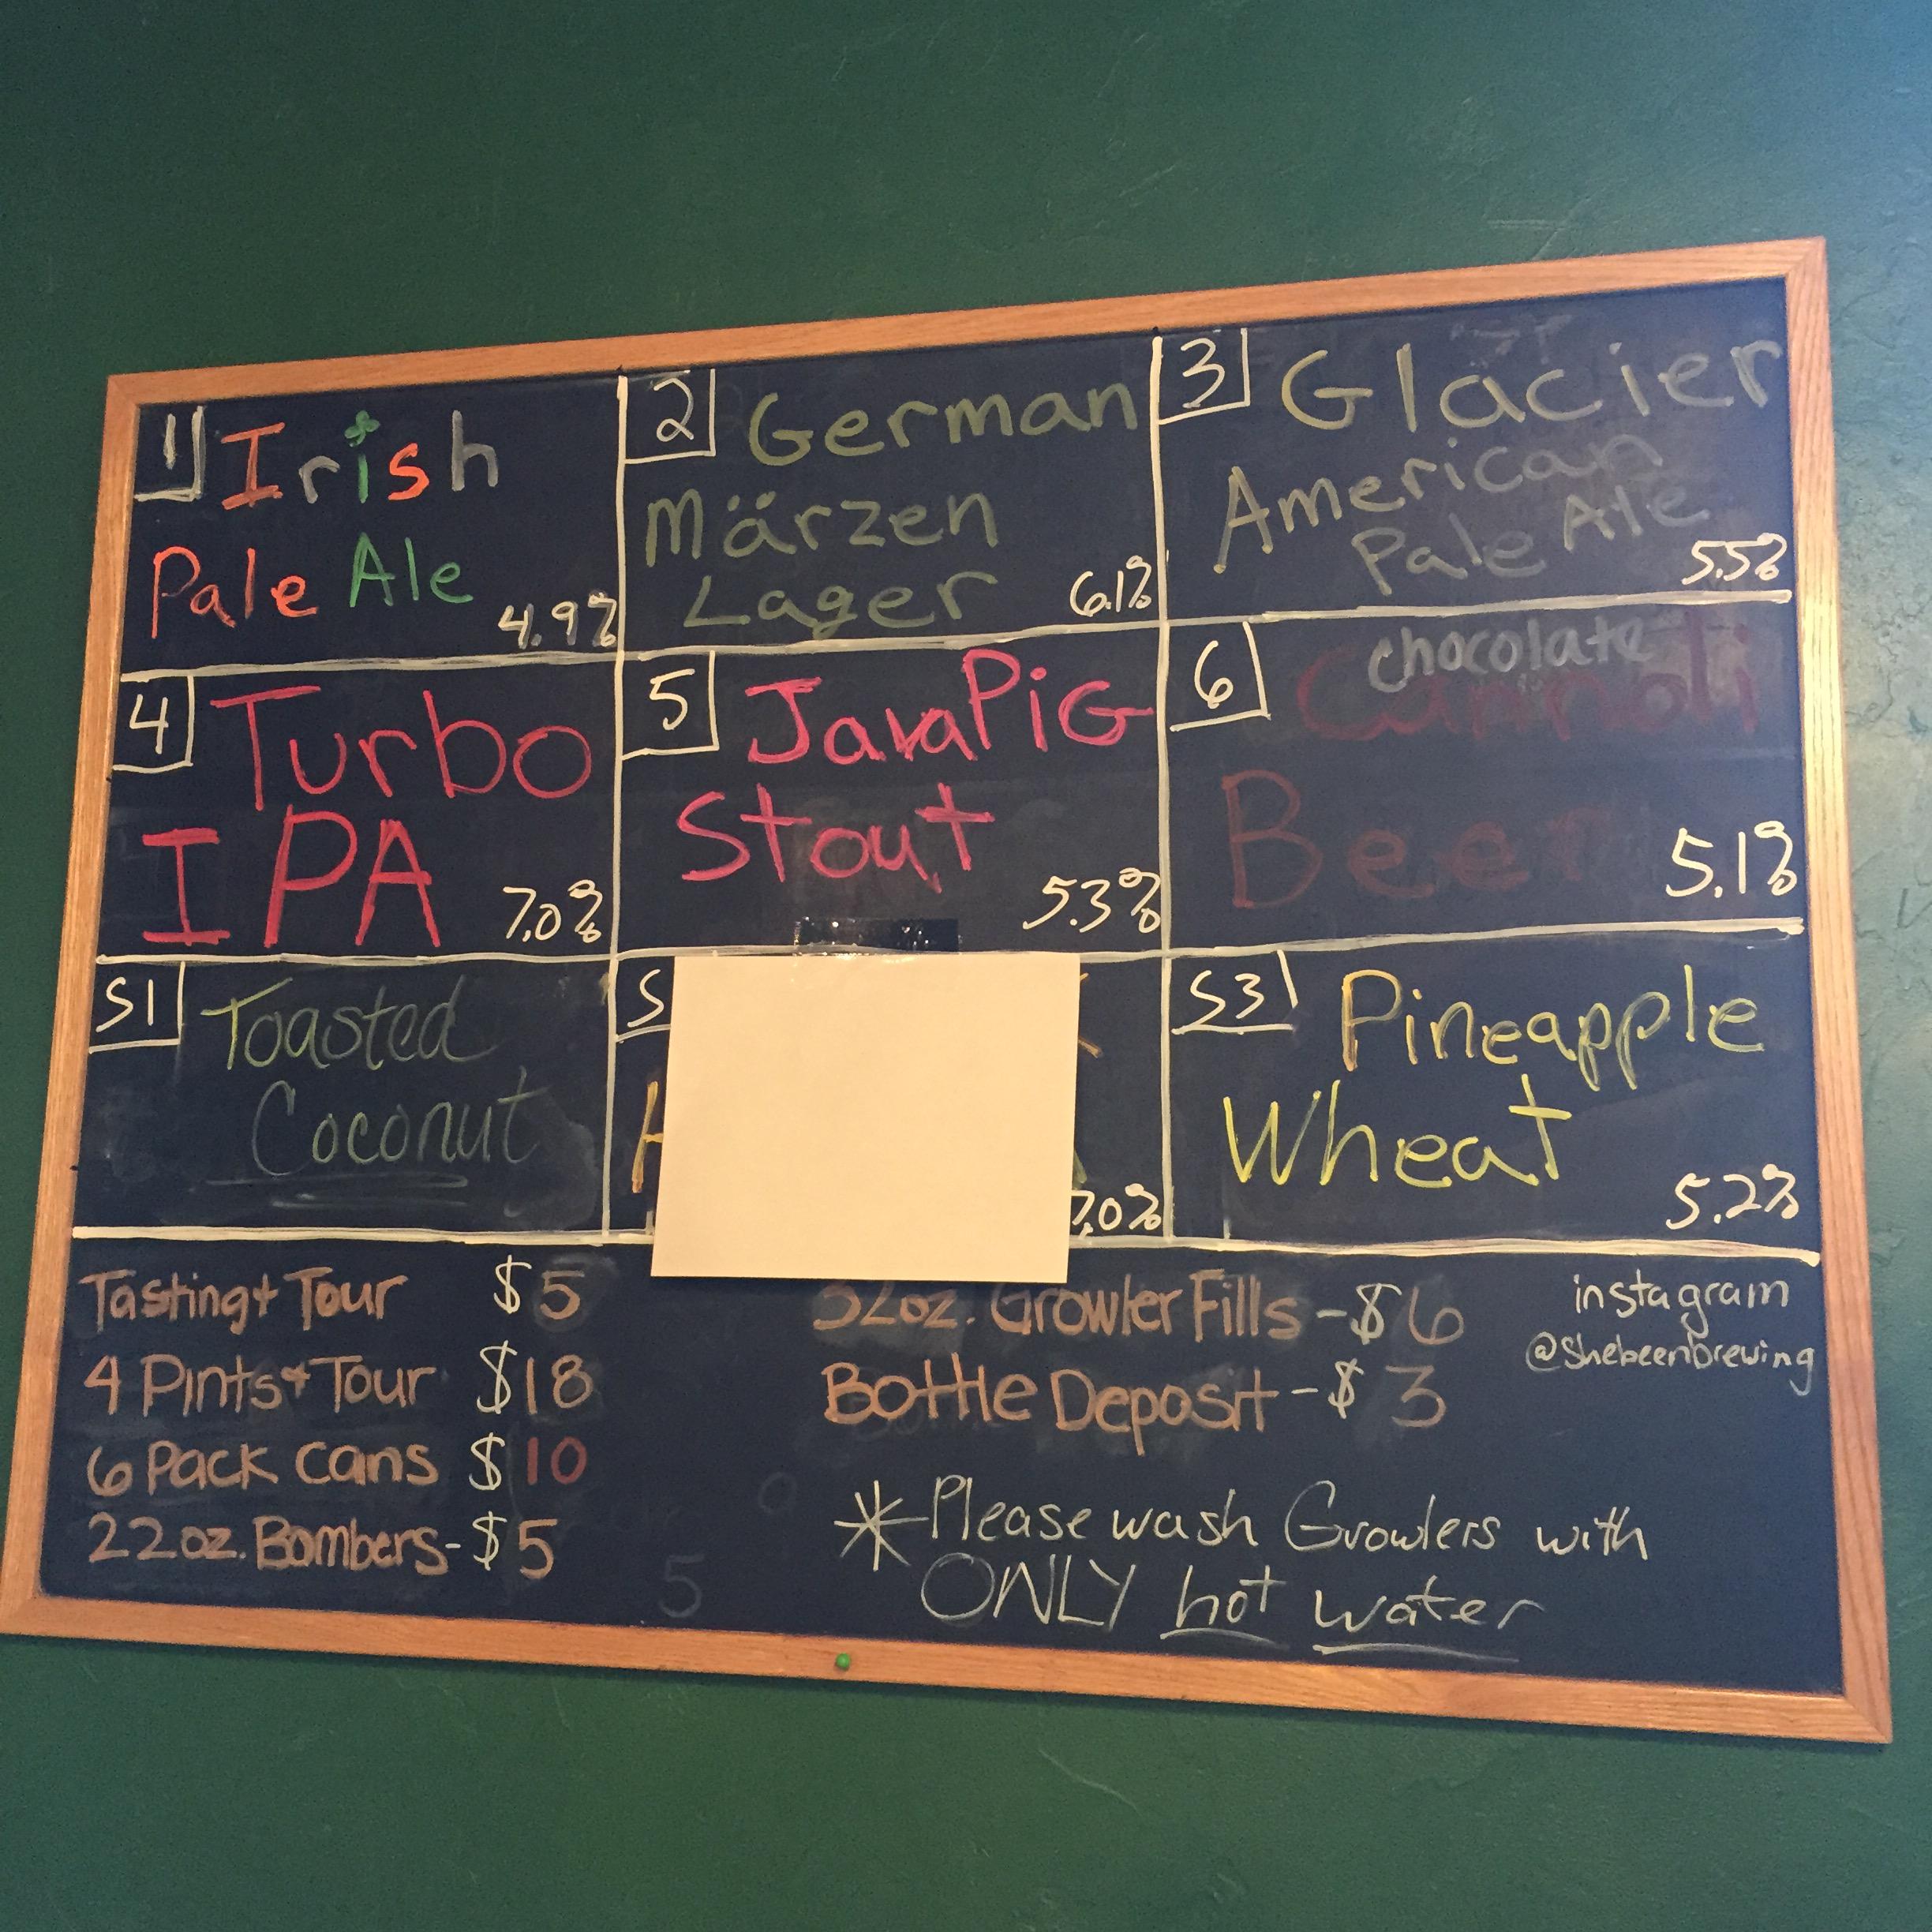 1
Irish
Pale Ale
4.9%
2
German
Märzen
Lager
6.1%
3
Glacier
American
Pale Ale
5.5%
4
Turbo
IPA
7.0%
5
JavaPiG
Stout
5.3%
6
chocolate
Cannoli
Beer
5.1%
S1
Toasted
Coconut
7.0%
S3
Pineapple
Wheat
5.2%
Tasting + Tour $5
4 Pints + Tour $18
6 Pack cans $10
22oz. Bombers - $5
32oz. Growler Fills - $6
Bottle Deposit - $3
instagram
@shebeenbrewing
* Please wash Growlers with
ONLY hot water